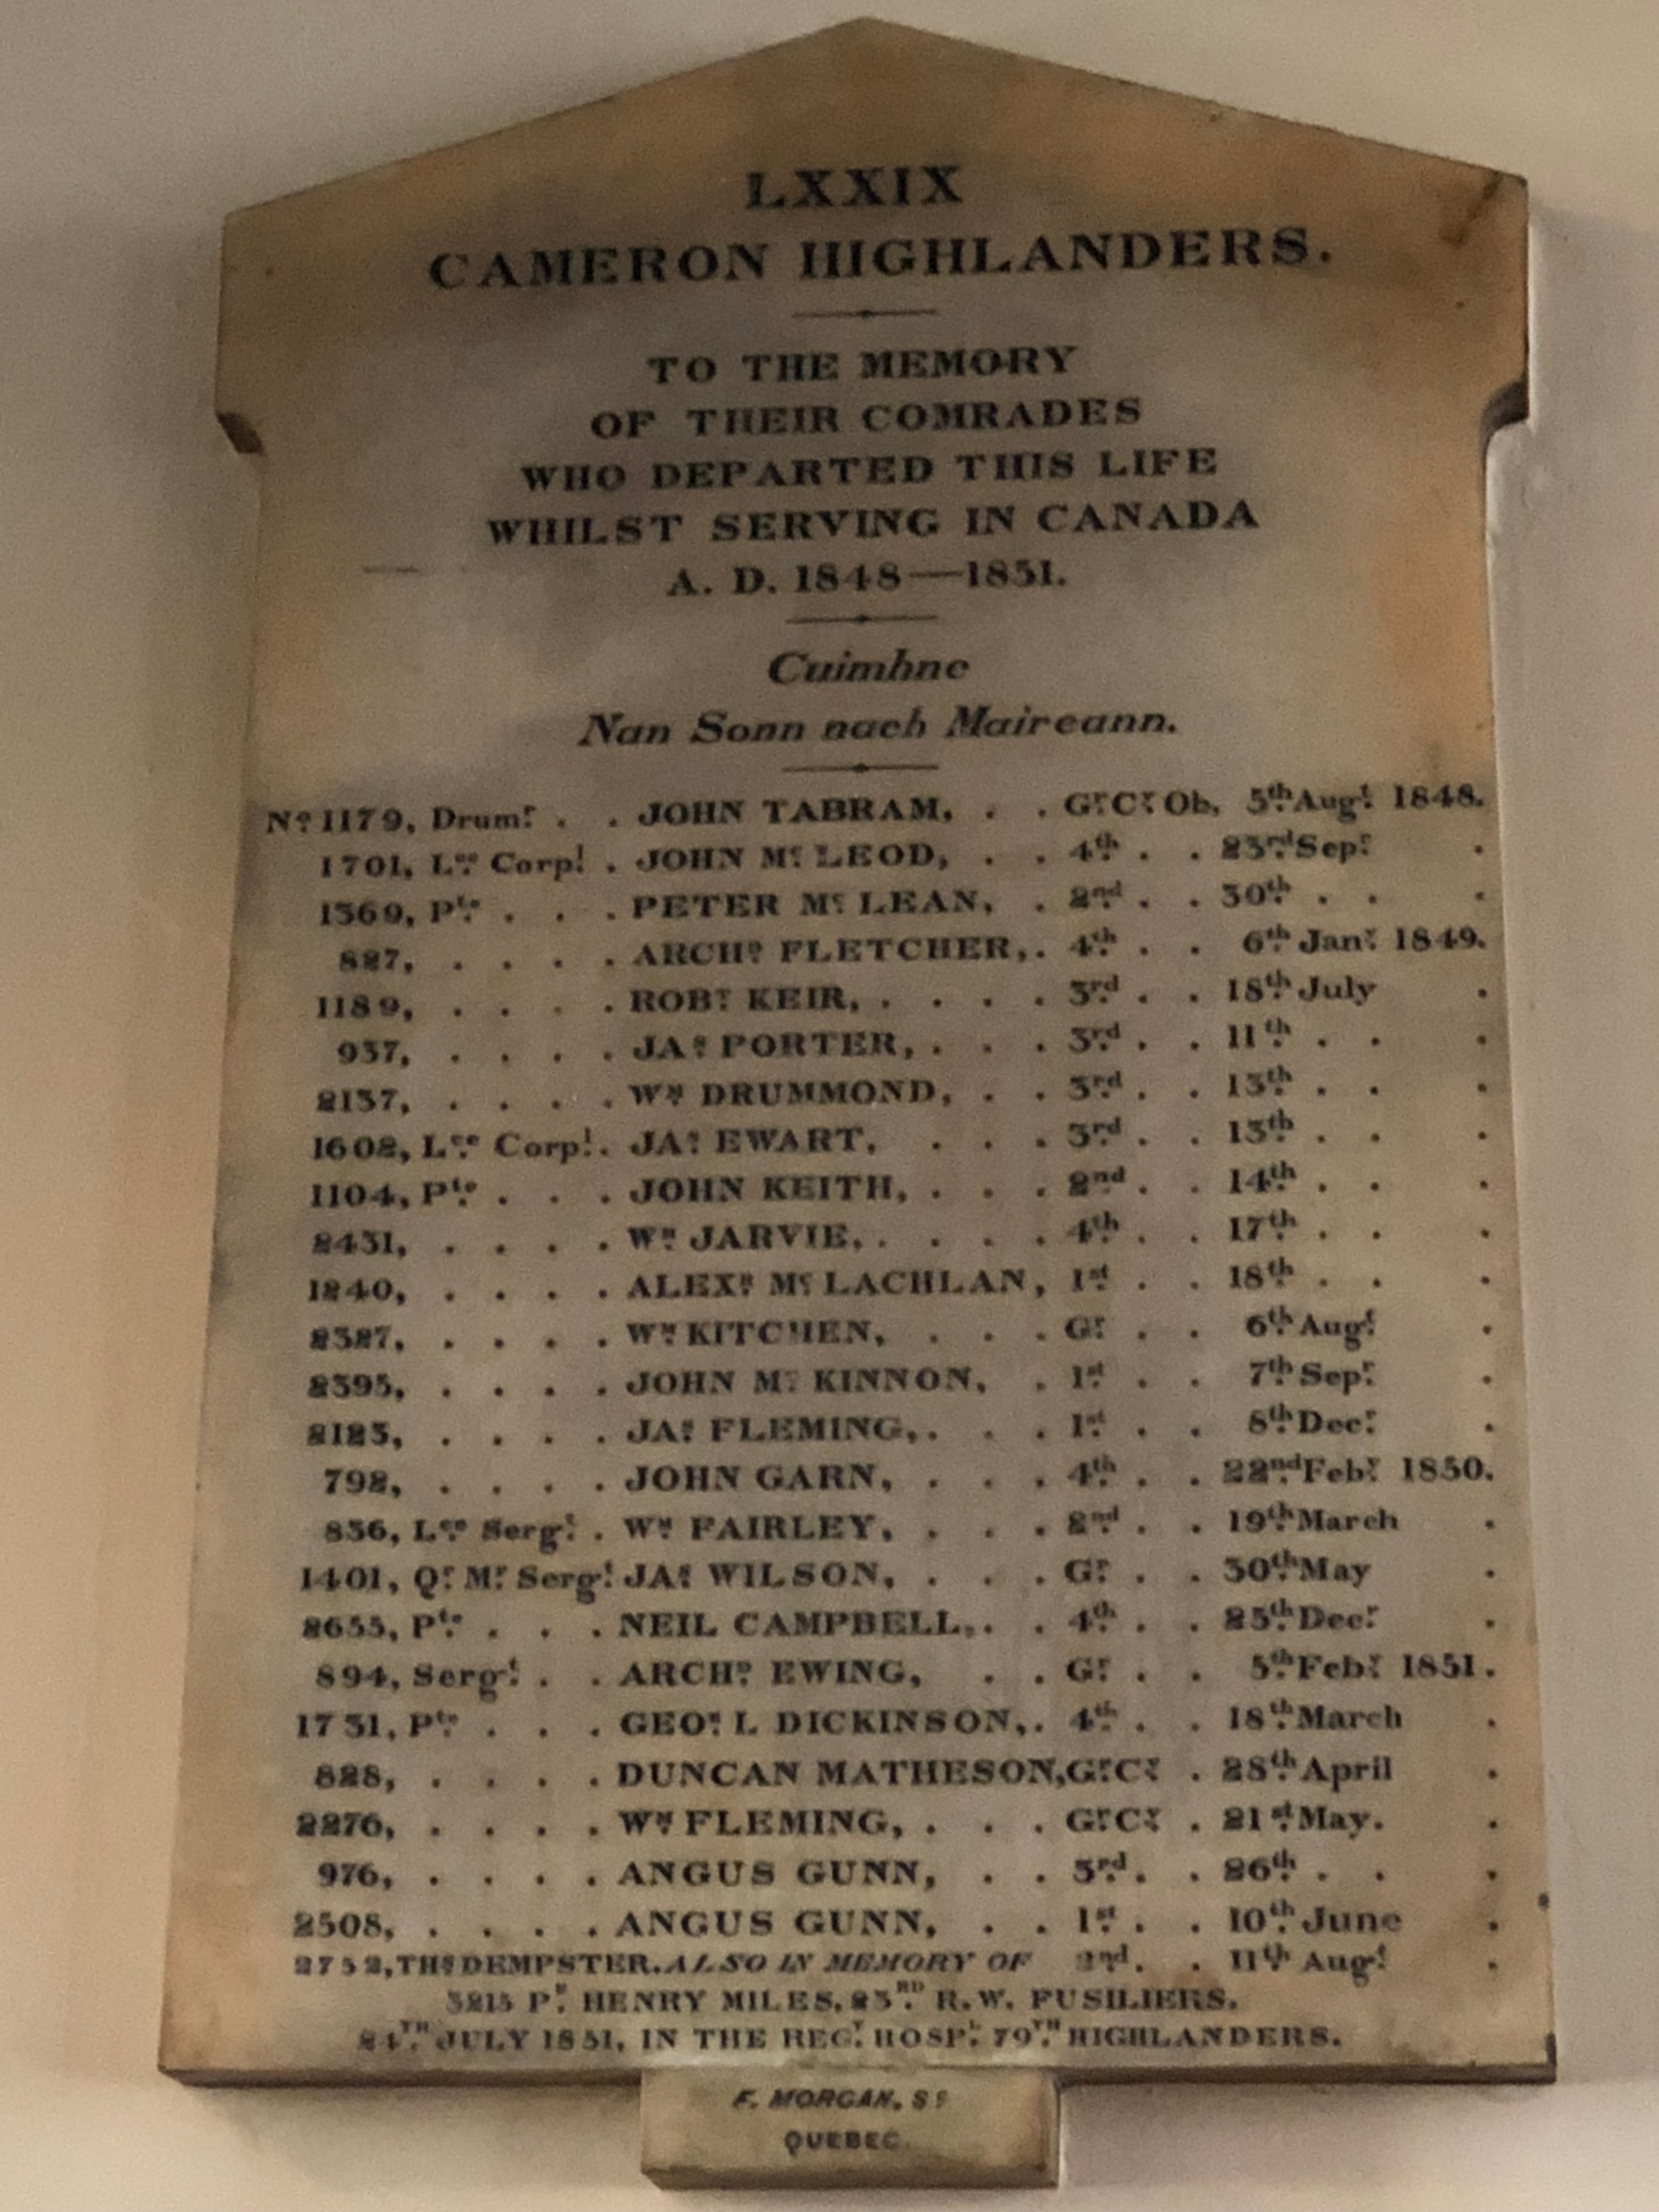 LXXIX
CAMERON HIGHLANDERS.
TO THE MEMORY
OF THEIR COMRADES
WHO DEPARTED THIS LIFE
WHILST SERVING IN CANADA
A. D. 1848—1851.
Cuimhne
Nan Sonn nach Maireann.
No 1179, Drumr . . JOHN TABRAM, . . Gr Cy Ob, 5th Augt 1848.
1701, Lce Corpl . JOHN Mc LEOD, . . 4th . . 23rd Sepr .
1369, Pte . . . PETER Mc LEAN, . 2nd . . 30th . . .
827, . . . . ARCHD FLETCHER, . 4th . . 6th Jany 1849.
1189, . . . . ROBT KEIR, . . . . 3rd . . 18th July .
937, . . . . JAS PORTER, . . . 3rd . . 11th . . .
2137, . . . . WM DRUMMOND, . . 3rd . . 13th . . .
1602, Lce Corpl . JAS EWART, . . . 3rd . . 13th . . .
1104, Pte . . . JOHN KEITH, . . . 2nd . . 14th . . .
2431, . . . . WM JARVIE, . . . . 4th . . 17th . . .
1240, . . . . ALEXR Mc LACHLAN, 1st . . 18th . . .
2327, . . . . WM KITCHEN, . . . Gr . . 6th Augt .
2395, . . . . JOHN Mc KINNON, . 1st . . 7th Sepr .
2123, . . . . JAS FLEMING, . . . 1st . . 8th Decr .
792, . . . . JOHN GARN, . . . 4th . . 22nd Feby 1850.
836, Lce Sergt . WM FAIRLEY, . . . 2nd . . 19th March .
1401, Qr Mr Sergt JAS WILSON, . . . Gr . . 30th May .
2655, Pte . . . NEIL CAMPBELL, . . 4th . . 25th Decr .
894, Sergt . . ARCHD EWING, . . Gr . . 5th Feby 1851.
1731, Pte . . . GEOE L DICKINSON, . 4th . . 18th March .
828, . . . . DUNCAN MATHESON, Gr Cy . 28th April .
2276, . . . . WM FLEMING, . . . Gr Cy . 21st May. .
976, . . . . ANGUS GUNN, . . 3rd . . 26th . . .
2508, . . . . ANGUS GUNN, . . 1st . . 10th June .
2752, THS DEMPSTER. ALSO IN MEMORY OF 2nd . . 11th Augt .
3215 PE HENRY MILES, 23RD R. W. FUSILIERS.
24TH JULY 1851, IN THE REGT HOSPL 79TH HIGHLANDERS.
F. MORGAN, SC
QUEBEC